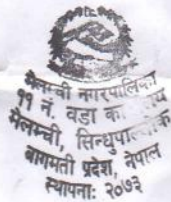 मेलम्ची नगरपालिका
११ नं. वडा का
मेलम्ची, सिन्धुपाल्चोक
बागमती प्रदेश, नेपाल
स्थापनाः २०७३